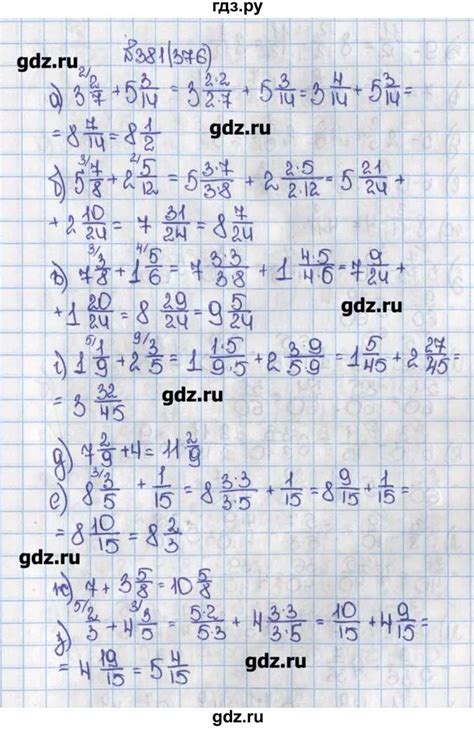 гдз.ру
№381(376)
gdz.ru
а) 3 2/7 + 5 3/14 = 3 2·2/2·7 + 5 3/14 = 3 4/14 + 5 3/14 =
= 8 7/14 = 8 1/2
gdz.ru
б) 5 7/8 + 2 5/12 = 5 3·7/3·8 + 2 2·5/2·12 = 5 21/24 +
+ 2 10/24 = 7 31/24 = 8 7/24
gdz.ru
в) 7 3/8 + 1 5/6 = 7 3·3/3·8 + 1 4·5/4·6 = 7 9/24 +
+ 1 20/24 = 8 29/24 = 9 5/24
gdz.ru
г) 1 1/9 + 2 3/5 = 1 1·5/9·5 + 2 3·9/5·9 = 1 5/45 + 2 27/45 =
= 3 32/45
gdz.ru
д) 7 2/9 + 4 = 11 2/9
gdz.ru
е) 8 3/5 + 1/15 = 8 3·3/3·5 + 1/15 = 8 9/15 + 1/15 =
= 8 10/15 = 8 2/3
gdz.ru
gdz.ru
ж) 7 + 3 5/8 = 10 5/8
з) 2/3 + 4 3/5 = 5·2/5·3 + 4 3·3/3·5 = 10/15 + 4 9/15 =
= 4 19/15 = 5 4/15
gdz.ru
gdz.ru
гдз.ру